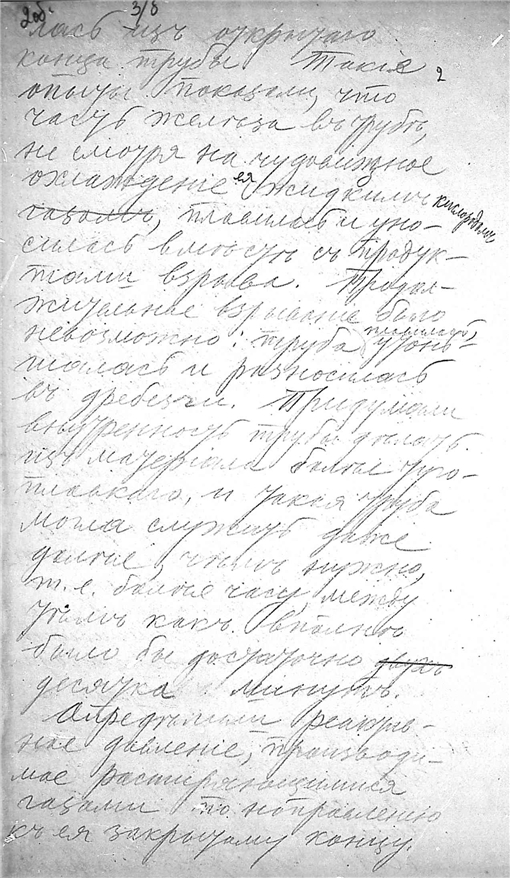 2об. 3/8
лась изъ открытаго
конца трубы. Такіе 2
опыты показали, что
часть желѣза въ трубѣ,
не смотря на чудовищное
охлажденіе ея жидкимъ кислородомъ
газомъ, плавилась и уно-
силась вмѣстѣ съ продук-
тами взрыва. Продол-
жительное взрываніе было
невозможно: труба плавилась, утонь-
шалась и разносилась
въ дребезги. Придумали
внутренность трубы дѣлать
изъ матеріала болѣе туго-
плавкаго, и такая труба
могла служить даже
долѣе, чѣмъ нужно,
т. е. болѣе часу, между
тѣмъ какъ вполнѣ
было бы достаточно двухъ
десятка минутъ.
Опредѣлили реактив-
ное давленіе, производи-
мое расширяющимися
газами по направленію
къ ея закрытому концу.